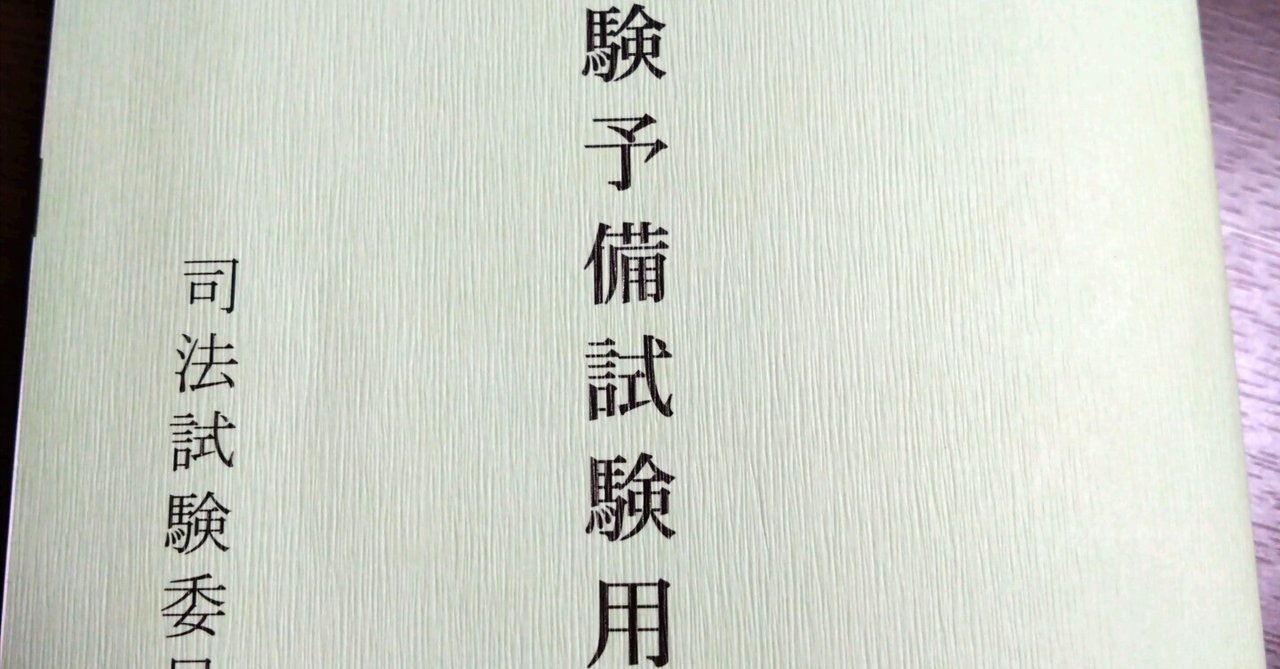 験予備試験用
司法試験委